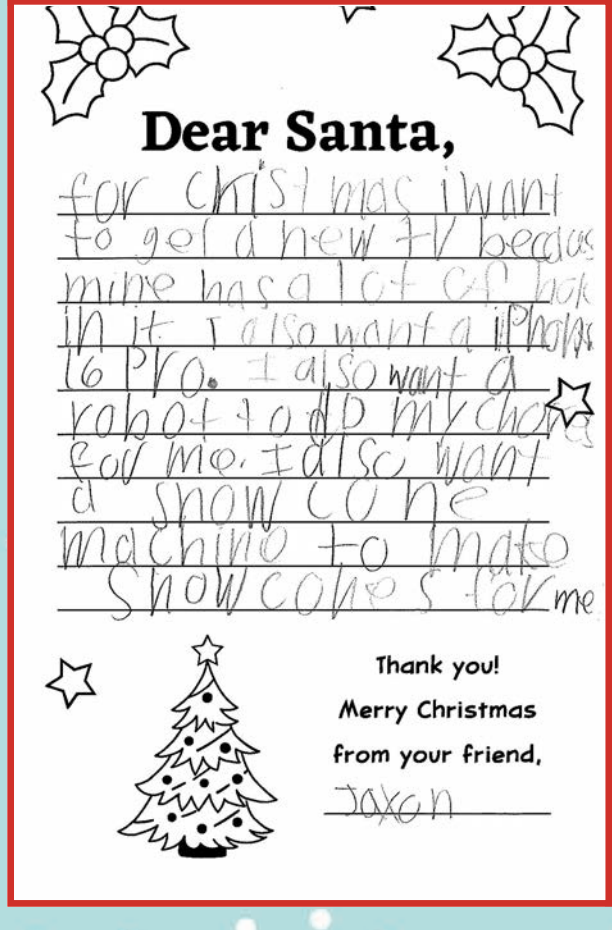 Dear Santa,
for chistmas i want
to get a new tv becaus
mine has a lot of hole
in it. I also want a iPhone
16 Pro. I also want a
robot to do my chores
for me. I also want
a snow cone
machine to make
snow cones for me
Thank you!
Merry Christmas
from your friend,
Jaxon